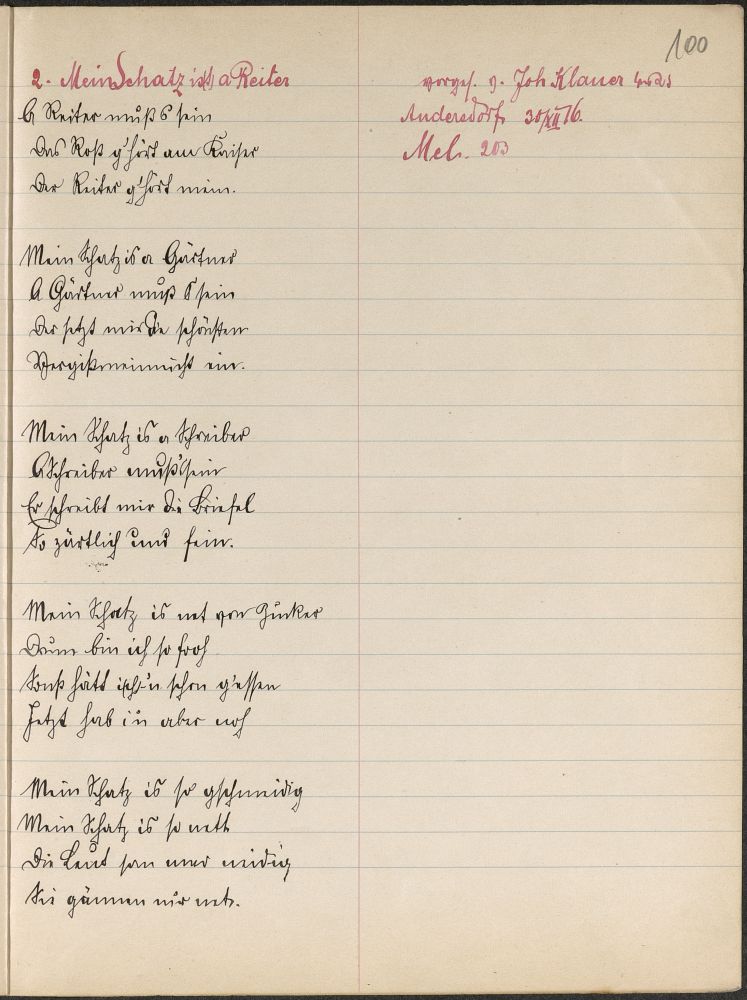 100
2. Mein Schatz is a Reiter
A Reiter muß s sein
Das Roß g'hört am Kaiser
Der Reiter g'hört mein.
Mein Schatz is a Gärtner
A Gärtner muß s sein
Der setzt mir die schönsten
Vergißmeinnicht ein.
Mein Schatz is a Schreiber
A Schreiber muß's sein
Er schreibt mir die Briefel
So zärtlich und fein.
Mein Schatz is net von Zucker
Drum bin ich so froh
Sonst hätt ich'n schon g'essen
Jetzt hab i'n aber noh
Mein Schatz is so gschmeidig
Mein Schatz is so nett
Die Leut san mir neidig
Sie gännen mir net.
vorges. v. Joh Klauer
Andersdorf 30/XII 16.
Mel. 203